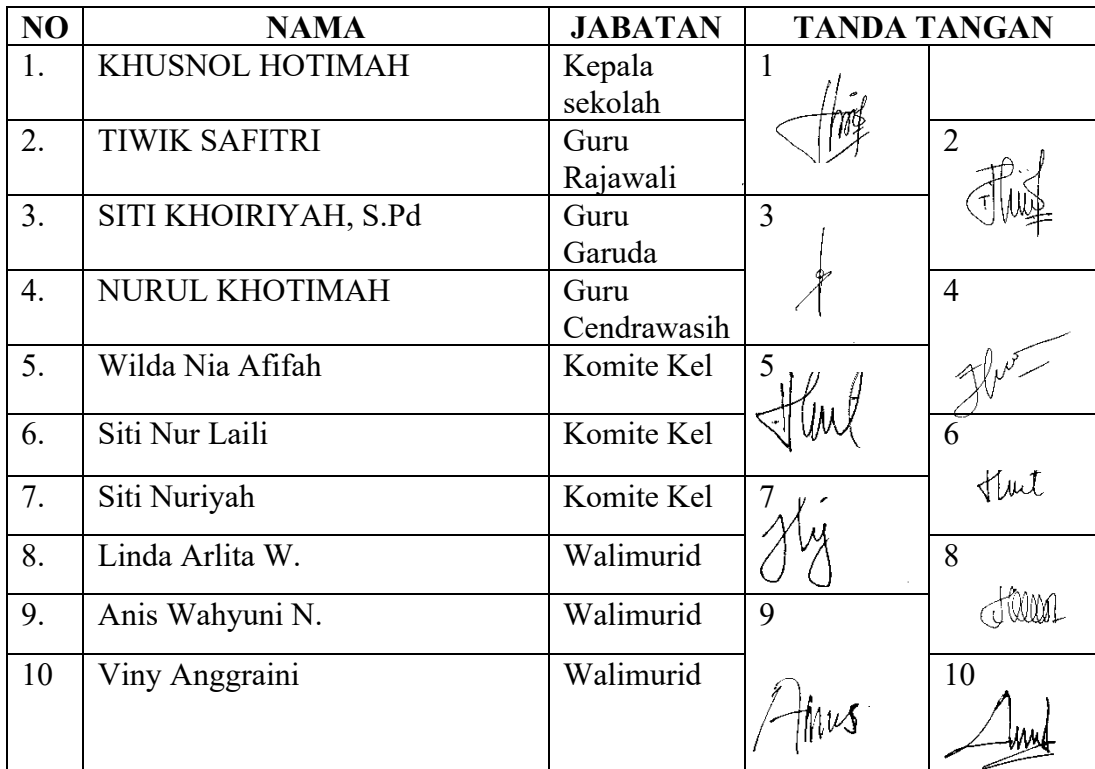 NO NAMA JABATAN TANDA TANGAN
1. KHUSNOL HOTIMAH Kepala 1
sekolah
2. TIWIK SAFITRI Guru 2
Rajawali
3. SITI KHOIRIYAH, S.Pd Guru 3
Garuda
4. NURUL KHOTIMAH Guru 4
Cendrawasih
5. Wilda Nia Afifah Komite Kel 5
6. Siti Nur Laili Komite Kel 6
7. Siti Nuriyah Komite Kel 7
8. Linda Arlita W. Walimurid 8
9. Anis Wahyuni N. Walimurid 9
10 Viny Anggraini Walimurid 10